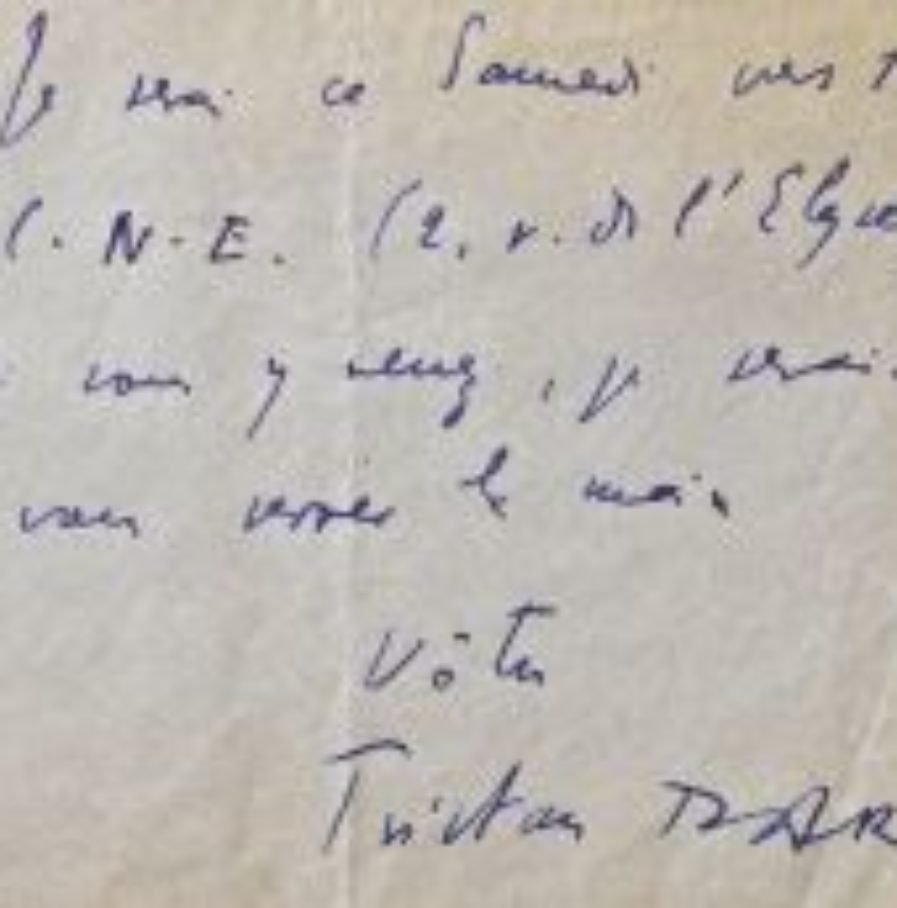 Je serai ce Samedi vers
C.N.E. (2, r. de l'Elysé
vous y venez, je serai
vous serrer la main
Vôtre
Tristan TZAR